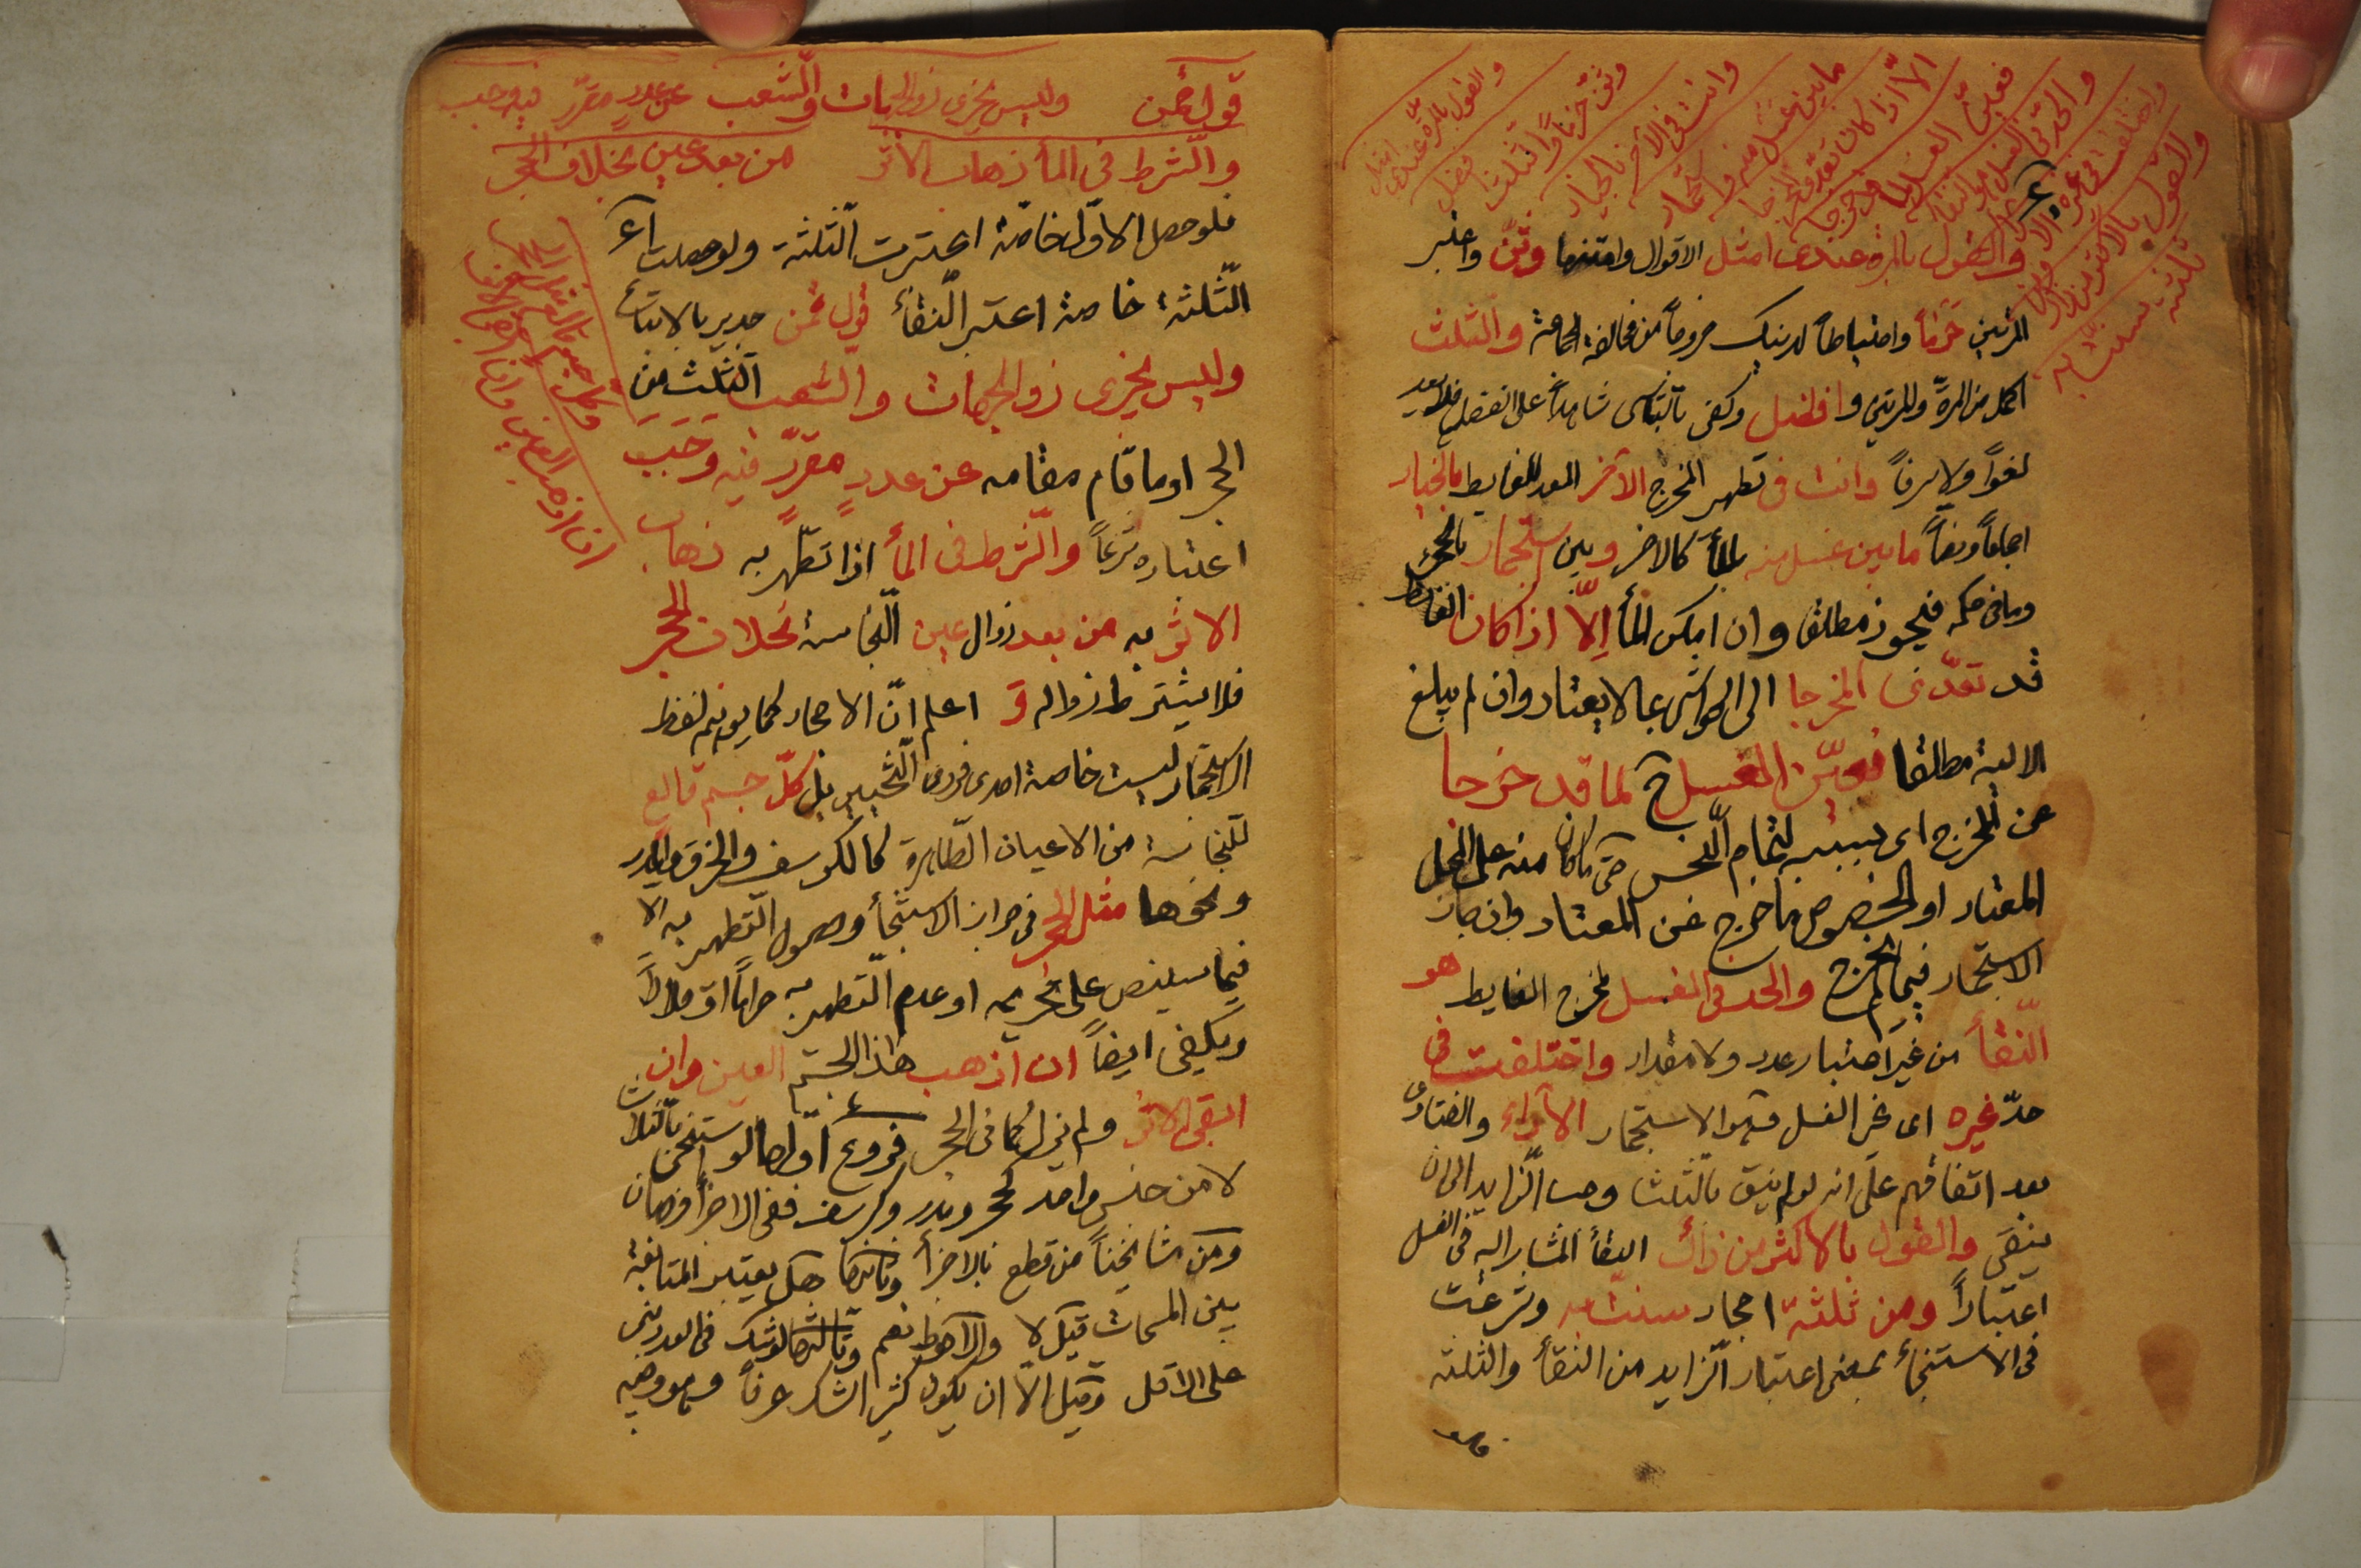 والقول بالمرة عندي امثل
وثن حزما وثلثنا افضل
وانت في الآخر بالخيار
ما بين غسل منه واستجمار
الا اذا كان تعدى المخرجا
فعين الغسل لما قد خرجا
والحد في الغسل هو النقاء
واختلفت في غيره الاراء
والقول بالاكثر من ذاك ومن
ثلثة سنت به
والقول بالمرة عندى امثل الاقوال وامتنها وثن واعتبر
المرتين حزماً واحتياطاً لدينك خروجاً من مخالفة الجماعة والثلث
اكمل من المرة والمرتين وافضل وكفى بالتاسى شاهداً على الفضل فلا يعد
لغواً ولا سرفاً وانت فى تطهير المخرج الآخر المعد للغايط بالخيار
اجماعاً ونصاً ما بين غسل منه بالمأ كالاخر وبين استجمار بالحجر
وما فى حكمه فيجوز مطلقا وان امكن المأ إلّا اذا كان الغايط
قد تعدّى المخرجا الى الحواشى بما لا يعتاد وان لم يبلغ
الالية مطلقا فعيّن الغسل ح لما قد خرجا
عن المخرج اى بسببه لتمام النجس حتى ما كان منه على المحل
المعتاد او لخصوص ما خرج عن المعتاد وان جاز
الاستجمار فيما لم يخرج والحد فى الغسل لمخرج الغايط هو
النّقأ من غير اعتبار عدد ولا مقدار واختلفت فى
حدّ غيره اى غير الغسل وهو الاستجمار الآراء والفتاوى
بعد اتفاقهم على انه لو لم ينق بالثلث وجب الزايد الى ان
ينقى والقول بالاكثر من ذاك النقأ المشار اليه فى الغسل
اعتباراً ومن ثلثة احجار سنت به وشرعت
فى الاستنجأ بمعنى اعتبار الزايد من النقأ والثلثة
قول قمن وليس يجزى ذو الجهات والشعب عن عدد مقرّر فيه وجب
والشرط فى المأ ذهاب الاثر من بعد عين بخلاف الحجر
وكل جسم قالع مثل الحجر
ان اذهب العين وان ابقى الاثر
فلو حصل الاوّل خاصّة اعتبرت الثلثة ولو حصلت
الثّلثة خاصة اعتبر النقأ قول قمن جدير بالاتباع
وليس يجزى ذو الجهات والشعب الثلث من
الحجر او ما قام مقامه عن عددٍ مقرّرٍ فيه وجب
اعتباره شرعاً والشرط فى المأ اذا تطهّر به ذهاب
الاثر به من بعد زوال عين النّجاسة بخلاف الحجر
فلا يشترط زواله و اعلم انّ الاحجار كما يوهم لفظ
الاستجمار ليست خاصة احدى فردى التخيير بل كلّ جسم قالع
للنجاسة من الاعيان الطّاهرة كالكرسف والخرق والمدر
ونحوها مثل الحجر فى جواز الاستنجأ وحصول التطهير به الا
فيما سينص على تحريمه او عدم التّطهير به حراماً او حلالاً
ويكفى ايضاً ان اذهب هذا الجسم العين وان
ابقى الاثر ولم يزل كما فى الحجر فروع اوّلها لو استنجى بالثلاث
لا من جنس واحد كحجر ومدر وكرسف ففى الاجزأ وجهان
ومن مشايخنا من قطع بالاجزأ وثانيها هل يعتبر المتابعة
بين المسحات قيل لا والاحوط نعم وثالثها لو شك فى العدد بنى
على الاقل وقيل الا ان يكون كثير الشك عرفاً وهو وجيه